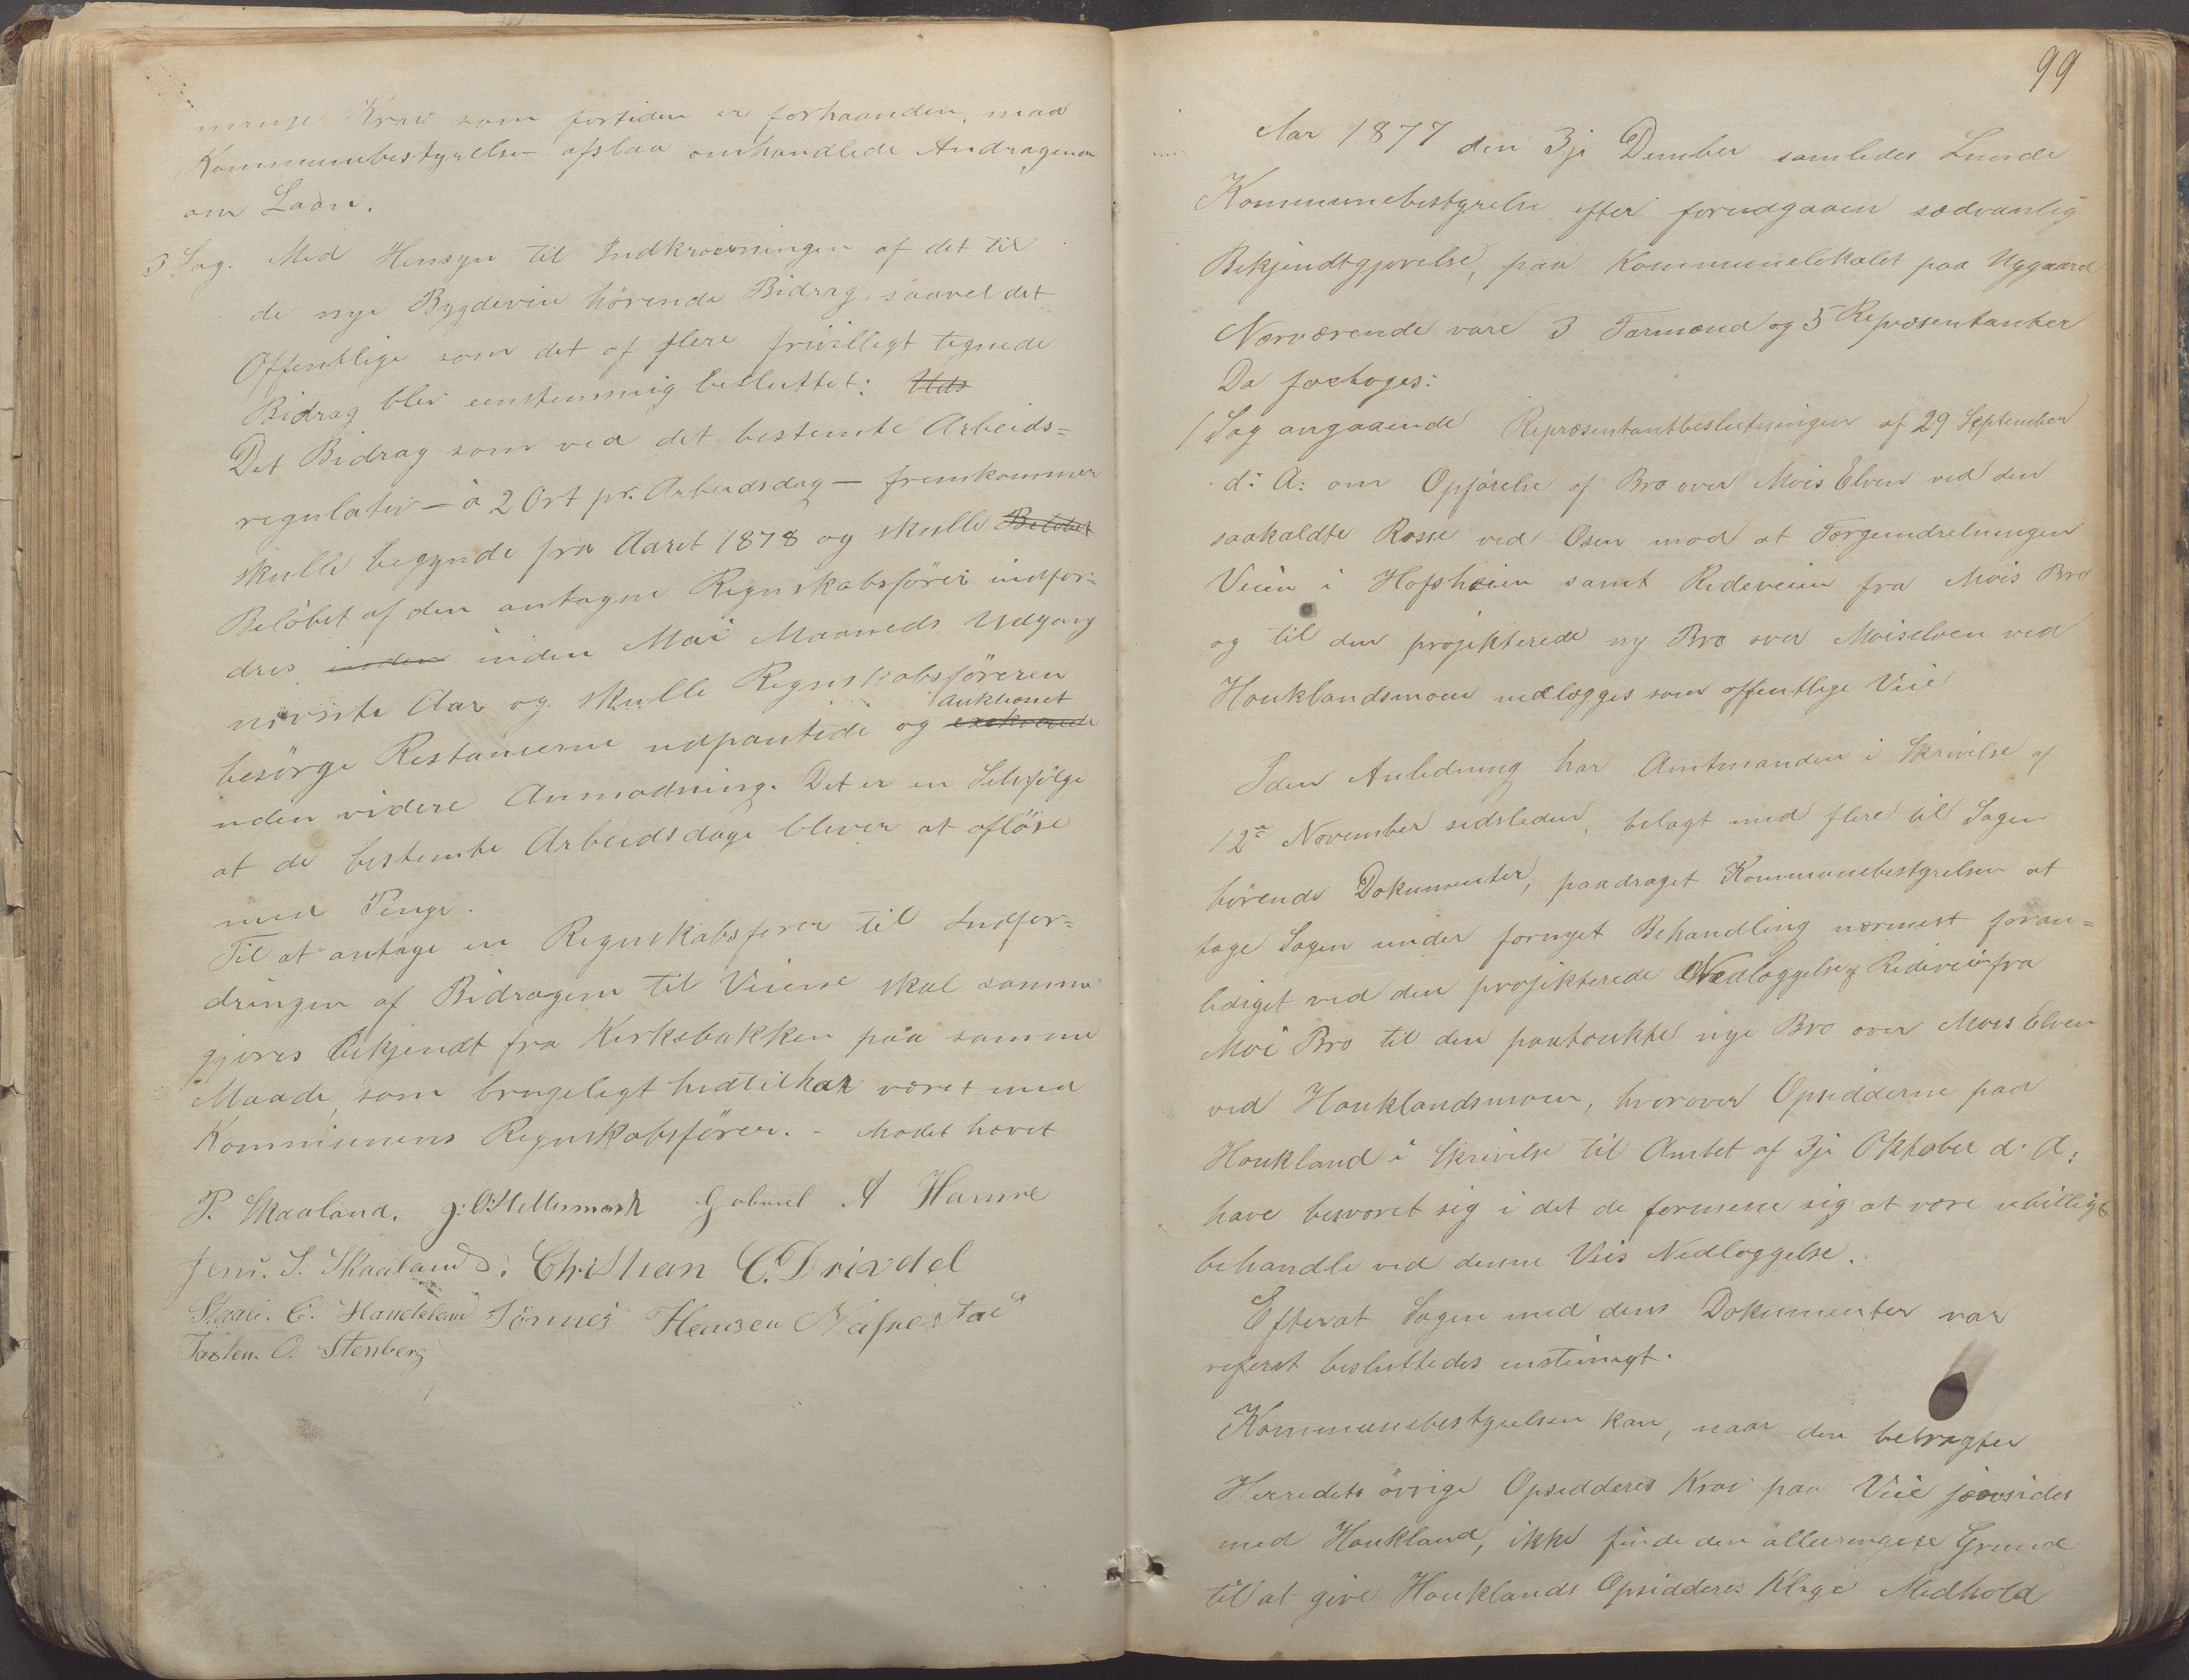 mange Krav som fortiden er forhaanden, maa
Kommunebestyrelsen afslaa omhandlede Andragende
om Laan.
3 Sag. Med Hensyn til Indkrævningen af det til
de nye Bygdeveie hörende Bidrag, saavel det
Offentlige som det af flere frivilligt tegnede
Bidrag blev eenstemmig besluttet: Uds
Det Bidrag som ved det bestemte Arbeids=
regulativ – à 2 Ort pr. Arbeidsdag – fremkommer
skulle begynde fra Aaret 1878 og skulle Belöbet
Belöbet af den antagne Regnskabsförer indfor=
dres inden inden Mai Maaneds Udgang
næste Aar og skulle Regnskabsföreren
auktionet
besörge Restancerne udpantede og
uden videre Anmodning. Det er en Selvfölge
at de bestemte Arbeidsdage bliver at aflöse
med Penge.
Til at antage en Regnskabsförer til Indfor=
dringen af Bidragene til Veiene skal samme
gjöres bekjendt fra Kirkebakken paa samme
Maade, som brugeligt hidtil har været med
Kommunens Regnskabsförer. – Mödet hævet
P. Skaaland. Gabriel A Hamre
Jens. S. Skaaland. Christian C. Drivdal
C. Haukeland Tönnes Hansen
Torsten. O. Stenberg
99
Aar 1877 den 3je Dember samledes Lunde
Kommunebestyrelse efter forudgaaen sædvanlig
Bekjendtgjörelse, paa Kommunelokalet paa Eygaard
Nærværende vare 3 Formænd og 5 Repræsentanter
Da foretoges:
1 Sag angaaende Repræsentantbeslutningen af 29 September
d: A: om Opförelse af Bro over Mois Elven ved den
saakaldte Rosse ved Osen mod at
Veien i Hofsheien samt Rideveien fra Mois Bro
og til den projekterede ny Bro over Moiselven ved
Hauklandsmoen nedlægges som offentlige Veie
I den Anledning har Amtmanden i Skrivelse af
12te November sidstleden, belagt med flere til Sagen
hörende Dokumenter, paadraget Kommunebestyrelsen at
tage Sagen under fornyet Behandling nærmest foran=
lediget ved den projekterede Nedlæggelse af Rideveien fra
Moi Bro til den paatænkte nye Bro over Mois Elven
ved Hauklandsmoen, hvorover Opsidderne paa
Haukland i Skrivelse til Amtet af 3je Oktober d. A:
have besværet sig i det de formene sig at være ubilligt
behandle ved denne Veis Nedlæggelse.
Efter at Sagen med dens Dokumenter var
referet besluttedes enstemigt.
Kommunebestyrelsen kan, naar den betragter
Herredets övrige Opsidderes Krav paa Veie jævsides
med Haukland, ikke finde den allerringeste Grund
til at give Hauklands Opsidderes Klage Medhold